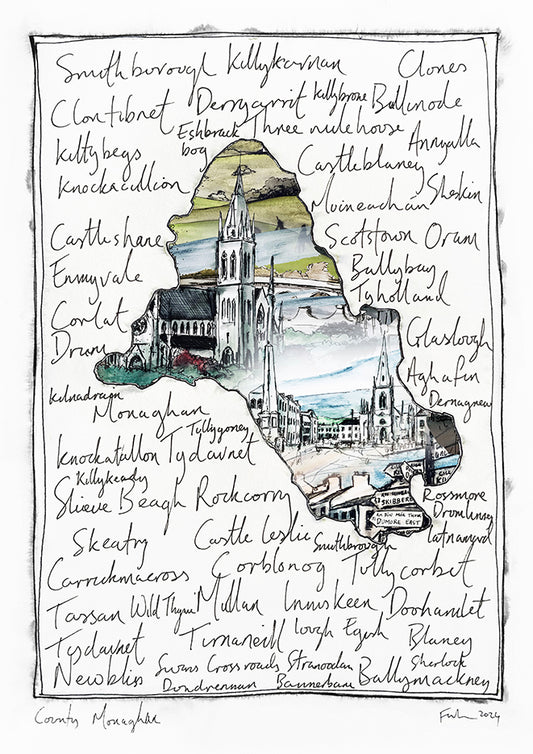 Smithborough Killykarnan Clones
Clontibret Derrygarrit Killybrone Ballinode
Eshbrack bog Three mile house Annyalla
Kittybegs Castleblaney
Knockacullion Muineachán Sheskin
Castleshane Scotstown Oram
Emmyvale Ballybay
Tyholland
Corlat Glaslough
Drum Aghafin
Kilnadreen Dernagrew
Monaghan
Tullygoney
Knockatallon Tydavnet
Killykeady
Slieve Beagh Rockcorry
SKIBBEREEN
DUMORE EAST
Rossmore
Drumlinny
Latnamard
Skeatry Castle Leslie Smithborough
Carrickmacross Corblonog Tullycorbet
Tassan Wild Thyme Mullan Inniskeen Doohamlet
Tydavnet Tirnaneill Lough Egish Blaney
Newbliss Swans Crossroads Stranoodan Sherlock
Dundrennan Bannerbane Ballymackney
County Monaghan
2024